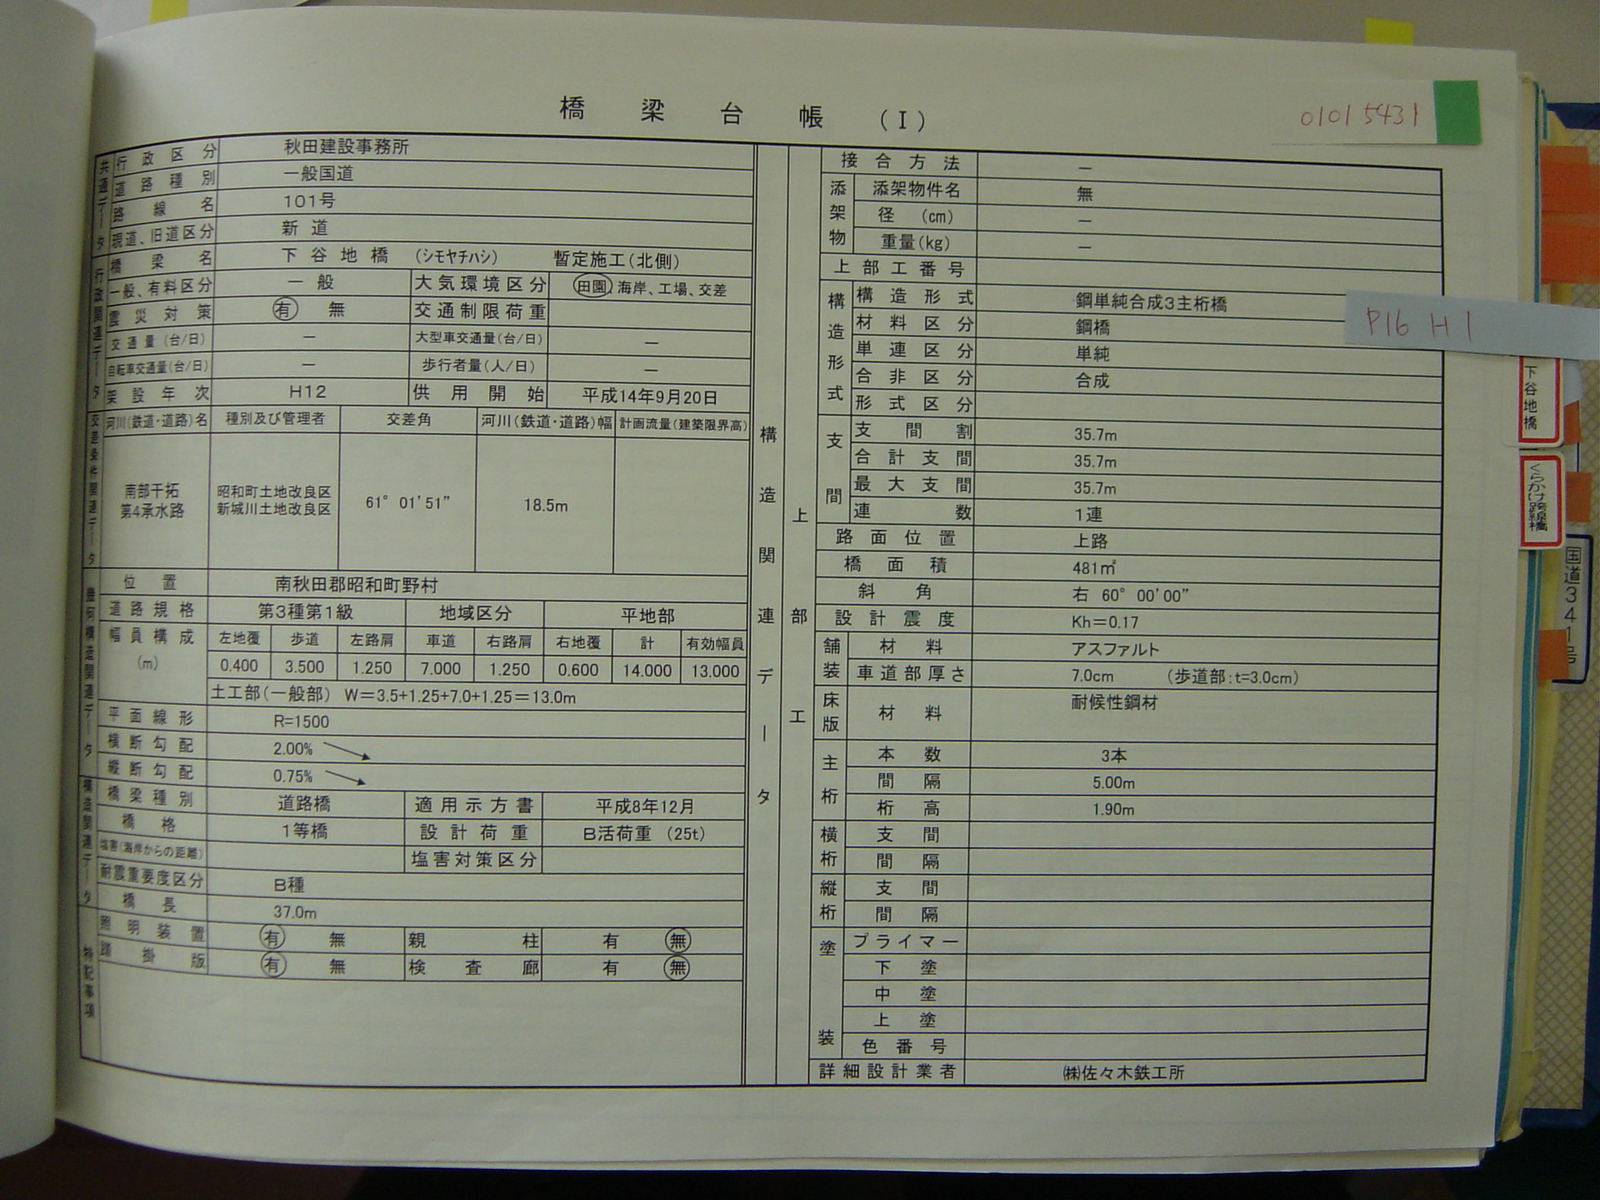 橋梁台帳 (Ⅰ)
01015431
共通データ
行政区分 秋田建設事務所
道路種別 一般国道
路線名 101号
現道、旧道区分 新道
行政関連データ
橋梁名 下谷地橋 (シモヤチハシ) 暫定施工(北側)
一般、有料区分 一般 大気環境区分 田園、海岸、工場、交差
震災対策 有 無 交通制限荷重
交通量(台/日) － 大型車交通量(台/日) －
自転車交通量(台/日) － 歩行者量(人/日) －
架設年次 H12 供用開始 平成14年9月20日
交差条件関連データ
河川(鉄道・道路)名 種別及び管理者 交差角 河川(鉄道・道路)幅 計画流量(建築限界高)
南部干拓 昭和町土地改良区 61° 01'51" 18.5m
第4承水路 新城川土地改良区
幾何構造関連データ
位置 南秋田郡昭和町野村
道路規格 第3種第1級 地域区分 平地部
幅員構成 左地覆 歩道 左路肩 車道 右路肩 右地覆 計 有効幅員
(m) 0.400 3.500 1.250 7.000 1.250 0.600 14.000 13.000
土工部(一般部) W＝3.5+1.25+7.0+1.25＝13.0m
平面線形 R=1500
横断勾配 2.00%
縦断勾配 0.75%
構造関連データ
橋梁種別 道路橋 適用示方書 平成8年12月
橋格 1等橋 設計荷重 B活荷重 (25t)
塩害(海岸からの距離) 塩害対策区分
耐震重要度区分 B種
橋長 37.0m
特記事項
照明装置 有 無 親柱 有 無
踏掛版 有 無 検査廊 有 無
構造関連データ
上部工
接合方法 －
添架物
添架物件名 無
径 (cm) －
重量(kg) －
上部工番号
構造形式
構造形式 鋼単純合成3主桁橋
材料区分 鋼橋
単連区分 単純
合非区分 合成
形式区分
支間
支間割 35.7m
合計支間 35.7m
最大支間 35.7m
連数 1連
路面位置 上路
橋面積 481㎡
斜角 右 60° 00'00"
設計震度 Kh＝0.17
舗装
材料 アスファルト
車道部厚さ 7.0cm (歩道部:t=3.0cm)
床版
材料 耐候性鋼材
主桁
本数 3本
間隔 5.00m
桁高 1.90m
横桁
支間
間隔
縦桁
支間
間隔
塗装
プライマー
下塗
中塗
上塗
色番号
詳細設計業者 ㈱佐々木鉄工所
P16 H1
下谷地橋
くらかけ跨線橋
国道341号